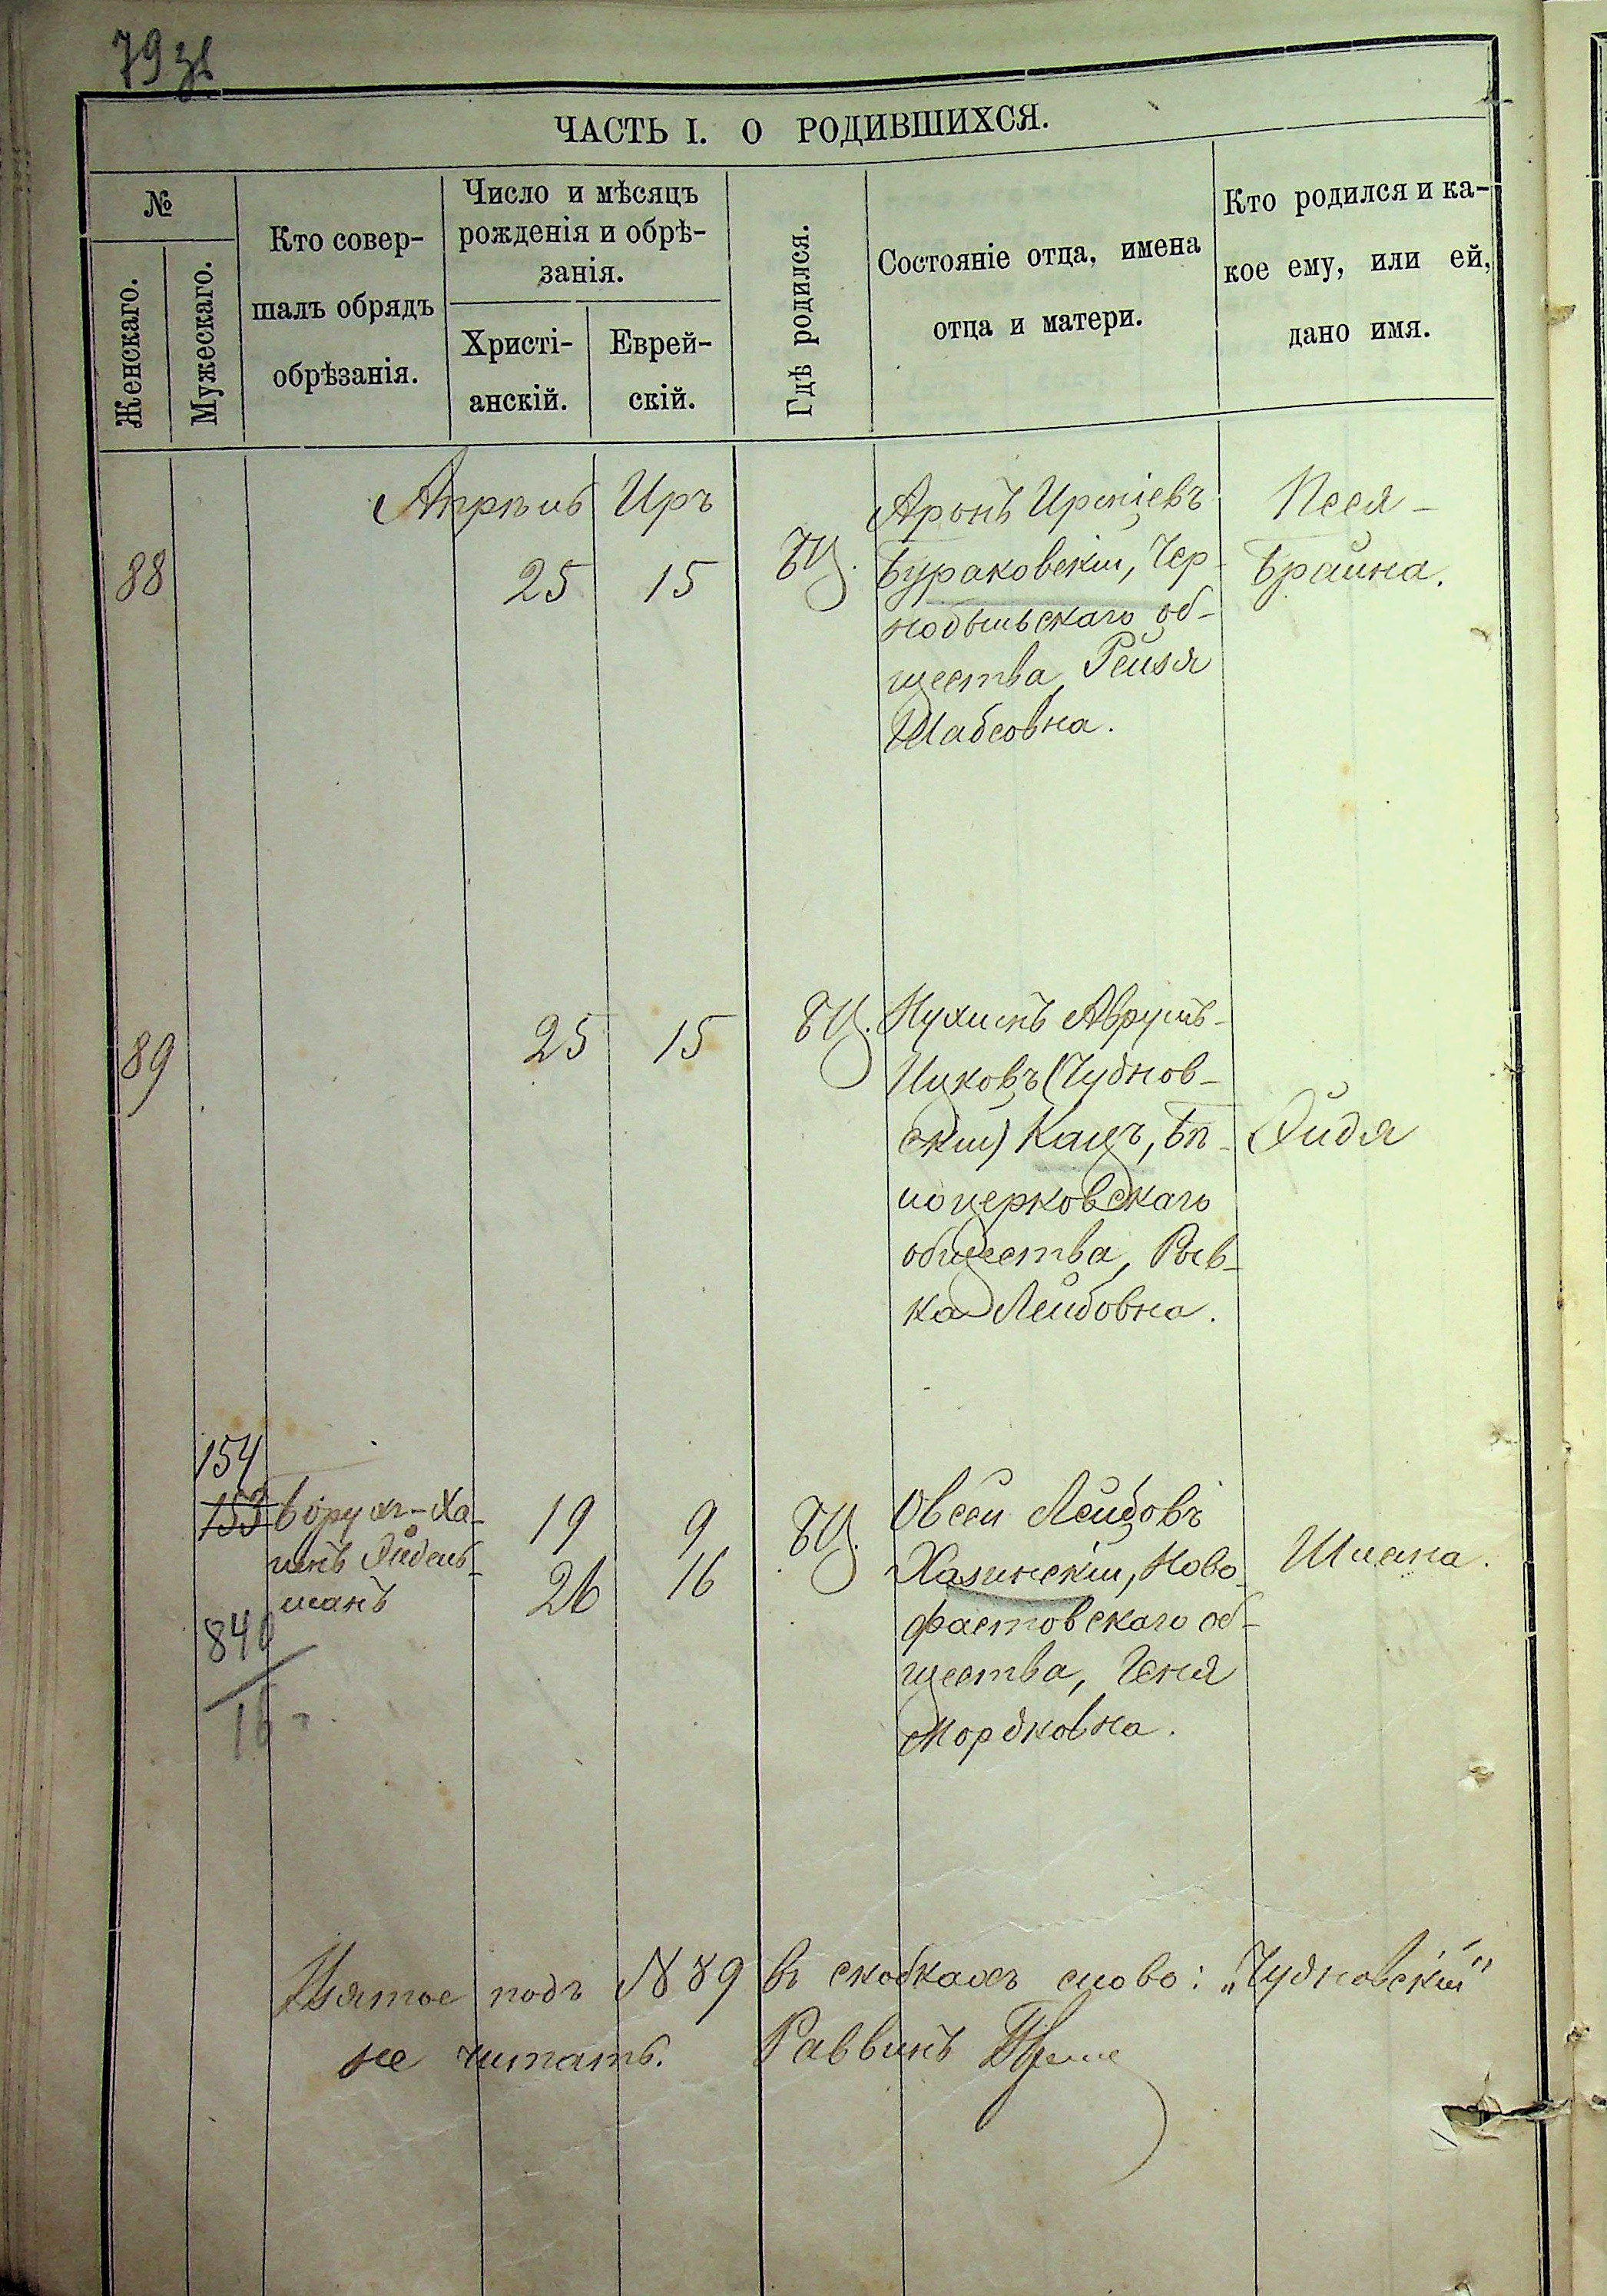 79 зв
ЧАСТЬ I. О РОДИВШИХСЯ.
№
Женскаго.
Мужескаго.
Кто совер-
шалъ обрядъ
обрѣзанія.
Число и мѣсяцъ
рожденія и обрѣ-
занія.
Христі-
анскій.
Еврей-
скій.
Гдѣ родился.
Состояніе отца, имена
отца и матери.
Кто родился и ка-
кое ему, или ей,
дано имя.
Апрѣль Иръ
88
25 15
БЦ.
Аронъ Иршіевъ
Бураковскій, Чер-
нобыльскаго об-
щества, Рейзя
Шабсовна.
Песя-
Брайна.
89
25 15
БЦ.
Нухимъ Аврумъ-
Ицковъ (Чуднов-
скій) Кацъ, Бѣ-
лоцерковскаго
общества, Рыв-
ка Лейбовна.
Фидя
154
153
Борухъ-Ха-
имъ
манъ
840
16
19 9
26 16
БЦ.
Овсей Лейбовъ
Хазинскій, Ново-
фастовскаго об-
щества, Геня
Мордковна.
Шлема.
Изятое подъ № 89 въ скобкахъ слово: „Чудновскій"
не читать. Раввинъ